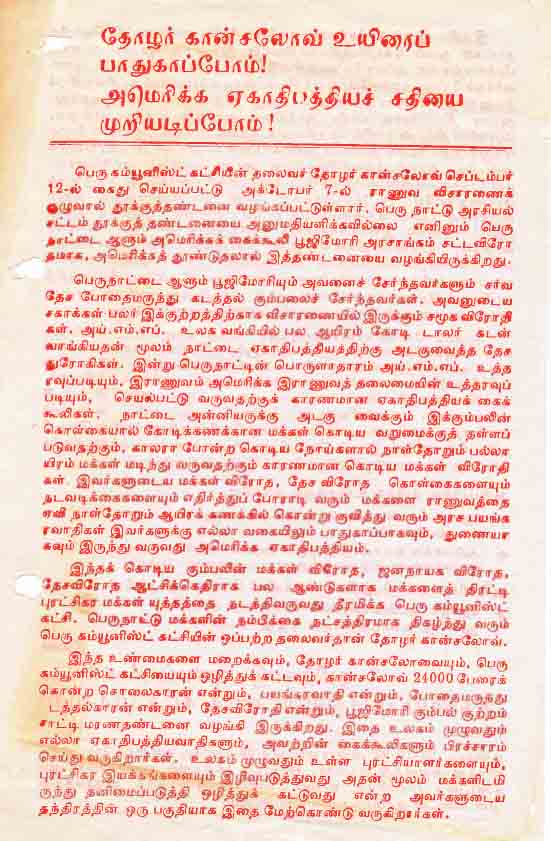 தோழர் கான்சலோவ் உயிரைப்
பாதுகாப்போம்!
அமெரிக்க ஏகாதிபத்தியச் சதியை
முறியடிப்போம்!
பெரு கம்யூனிஸ்ட் கட்சியின் தலைவர் தோழர் கான்சலோவ் செப்டம்பர்
12-ல் கைது செய்யப்பட்டு அக்டோபர் 7-ல் ராணுவ விசாரணைக்
குழுவால் தூக்குத்தண்டனை வழங்கப்பட்டுள்ளார். பெரு நாட்டு அரசியல்
சட்டம் தூக்குத் தண்டனையை அனுமதியளிக்கவில்லை எனினும் பெரு
நாட்டை ஆளும் அமெரிக்கக் கைக்கூலி பூஜிமோரி அரசாங்கம் சட்டவிரோ
தமாக, அமெரிக்கத் தூண்டுதலால் இத்தண்டனையை வழங்கியிருக்கிறது.
பெருநாட்டை ஆளும் பூஜிமோரியும் அவனைச் சேர்ந்தவர்களும் சர்வ
தேச போதைமருந்து கடத்தல் கும்பலைச் சேர்ந்தவர்கள். அவனுடைய
சகாக்கள் பலர் இக்குற்றத்திற்காக விசாரணையில் இருக்கும் சமூக விரோதி
கள். அய். எம். எப். உலக வங்கியில் பல ஆயிரம் கோடி டாலர் கடன்
வாங்கியதன் மூலம் நாட்டை ஏகாதிபத்தியத்திற்கு அடகுவைத்த தேச
துரோகிகள். இன்று பெருநாட்டின் பொருளாதாரம் அய். எம். எப். உத்த
ரவுப்படியும், இராணுவம் அமெரிக்க இராணுவத் தலைமையின் உத்தரவுப்
படியும், செயல்பட்டு வருவதற்குக் காரணமான ஏகாதிபத்தியக் கைக்
கூலிகள். நாட்டை அன்னியருக்கு அடகு வைக்கும் இக்கும்பலின்
கொள்கையால் கோடிக்கணக்கான மக்கள் கொடிய வறுமைக்குத் தள்ளப்
படுவதற்கும், காலரா போன்ற கொடிய நோய்களால் நாள்தோறும் பல்லா
யிரம் மக்கள் மடிந்து வருவதற்கும் காரணமான கொடிய மக்கள் விரோதி
கள். இவர்களுடைய மக்கள் விரோத, தேச விரோத கொள்கைகளையும்
நடவடிக்கைகளையும் எதிர்த்துப் போராடி வரும் மக்களை ராணுவத்தை
ஏவி நாள்தோறும் ஆயிரக் கணக்கில் கொன்று குவித்து வரும் அரச பயங்க
ரவாதிகள் இவர்களுக்கு எல்லா வகையிலும் பாதுகாப்பாகவும், துணையா
கவும் இருந்து வருவது அமெரிக்க ஏகாதிபத்தியம்.
இந்தக் கொடிய கும்பலின் மக்கள் விரோத, ஜனநாயக விரோத,
தேசவிரோத ஆட்சிக்கெதிராக பல ஆண்டுகளாக மக்களைத் திரட்டி
புரட்சிகர மக்கள் யுத்தத்தை நடத்திவருவது தீரமிக்க பெரு கம்யூனிஸ்ட்
கட்சி. பெருநாட்டு மக்களின் நம்பிக்கை நட்சத்திரமாக திகழ்ந்து வரும்
பெரு கம்யூனிஸ்ட் கட்சியின் ஒப்பற்ற தலைவர்தான் தோழர் கான்சலோவ்.
இந்த உண்மைகளை மறைக்கவும், தோழர் கான்சலோவையும், பெரு
கம்யூனிஸ்ட் கட்சியையும் ஒழித்துக் கட்டவும், கான்சலோவ் 24000 பேரைக்
கொன்ற கொலைகாரன் என்றும், பயங்கரவாதி என்றும், போதைமருந்து
டத்தல்காரன் என்றும், தேசவிரோதி என்றும், பூஜிமோரி கும்பல் குற்றம்
சாட்டி மரணதண்டனை வழங்கி இருக்கிறது. இதை உலகம் முழுவதும்
எல்லா ஏகாதிபத்தியவாதிகளும், அவற்றின் கைக்கூலிகளும் பிரச்சாரம்
செய்து வருகிறார்கள். உலகம் முழுவதும் உள்ள புரட்சியாளர்களையும்,
புரட்சிகர இயக்கங்களையும் இழிவுபடுத்துவது அதன் மூலம் மக்களிடமி
ருந்து தனிமைப்படுத்தி ஒழித்துக் கட்டுவது என்ற அவர்களுடைய
தந்திரத்தின் ஒரு பகுதியாக இதை மேற்கொண்டு வருகிறார்கள்.